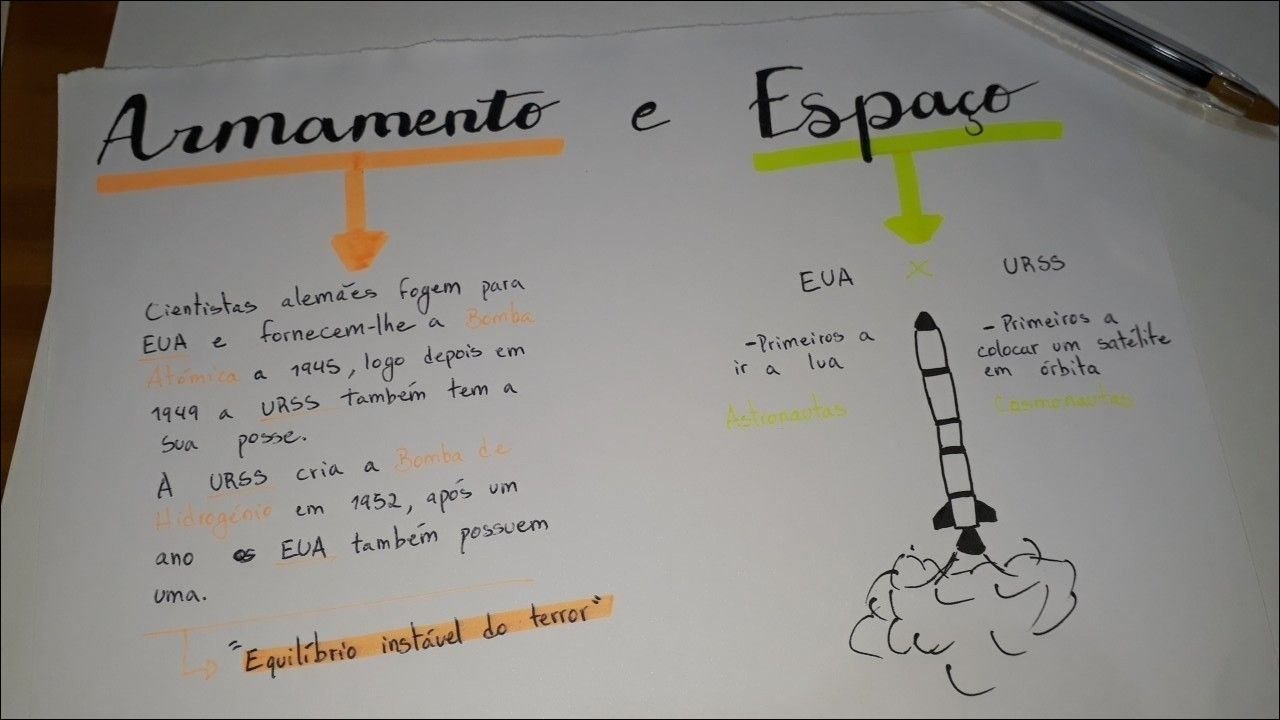 Armamento e Espaço
Cientistas alemães fogem para
EUA e fornecem-lhe a Bomba
Atómica a 1945, logo depois em
1949 a URSS também tem a
sua posse.
A URSS cria a Bomba de
Hidrogénio em 1952, após um
ano os EUA também possuem
uma.
"Equilíbrio instável do terror"
EUA X URSS
-Primeiros a
ir a lua
Astronautas
-Primeiros a
colocar um satélite
em órbita
Cosmonautas